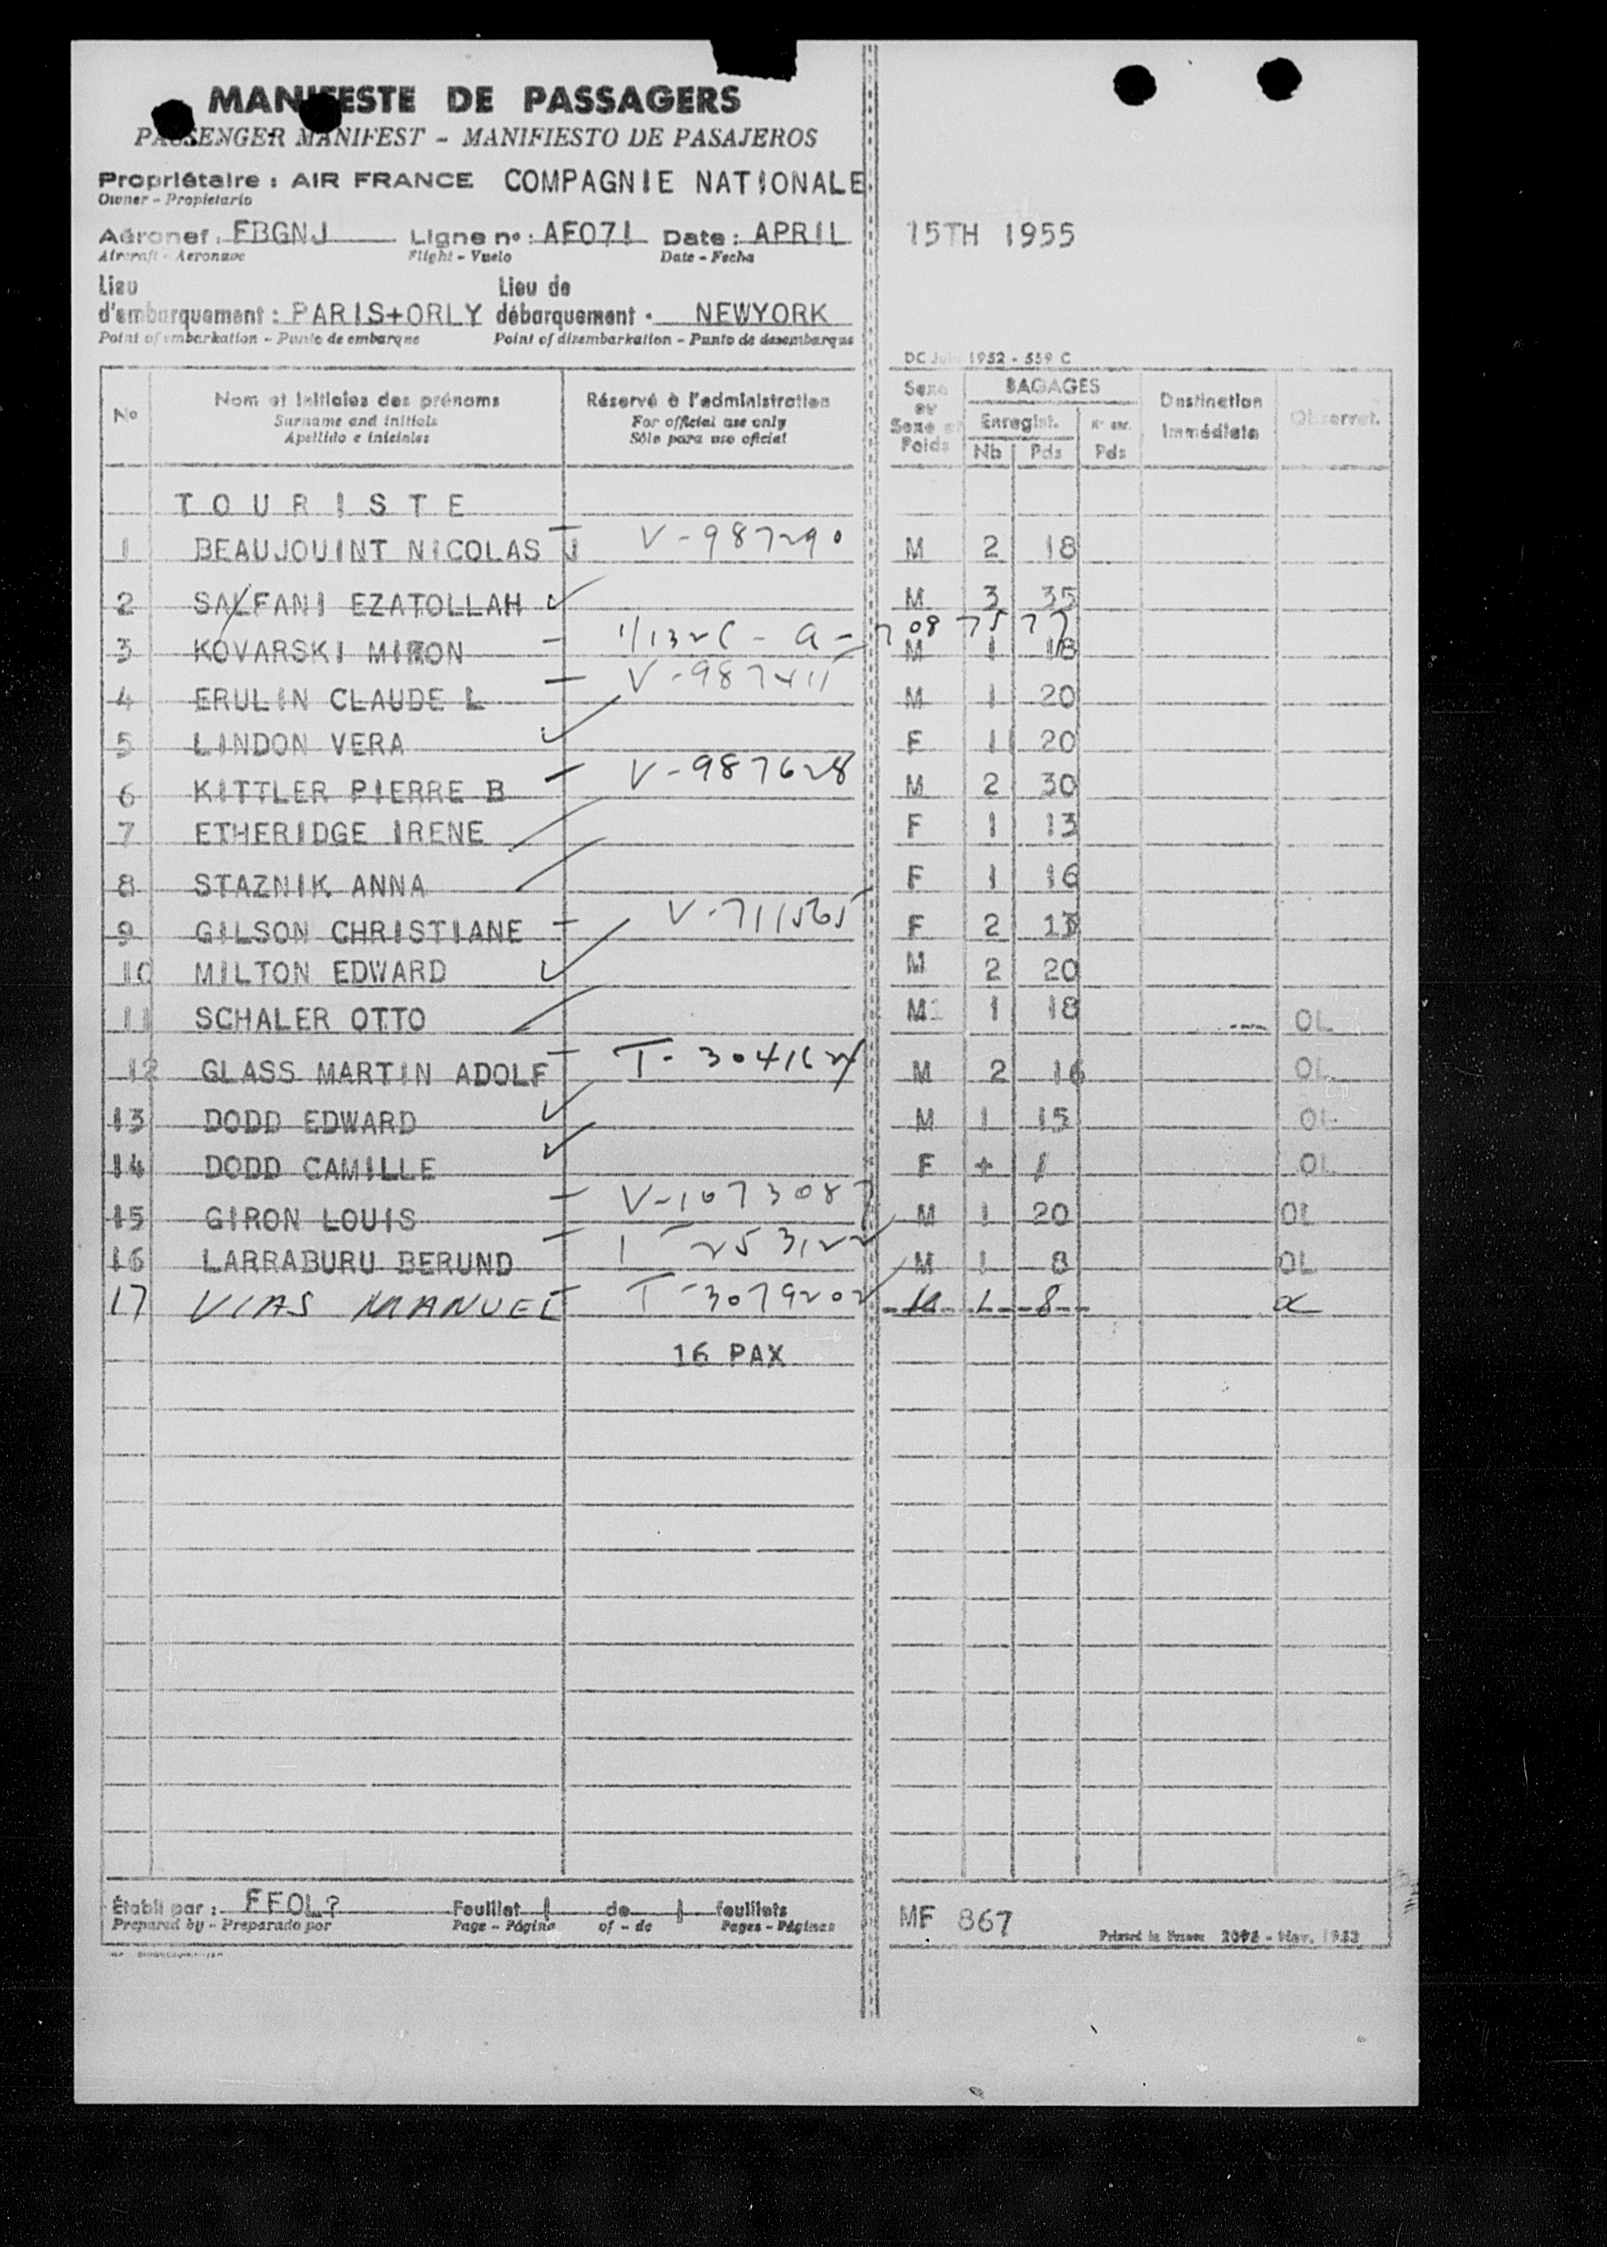 MANIFESTE DE PASSAGERS
PASSENGER MANIFEST - MANIFIESTO DE PASAJEROS
Propriétaire : AIR FRANCE COMPAGNIE NATIONALE
Owner - Propietario
Aéronef : FBGNJ Ligne nº : AF071 Date : APRIL 15TH 1955
Aircraft - Aeronave Flight - Vuelo Date - Fecha
Lieu d'embarquement : PARIS+ORLY Lieu de débarquement : NEWYORK
Point of embarkation - Punto de embarque Point of disembarkation - Punto de desembarque
DC 1952 - 559 C
No Nom et initiales des prénoms Réservé à l'administration Sexe ou Sexe et Poids BAGAGES Destination immédiate Observat.
Surname and initials For official use only Enregist. Nº enr.
Apellido e iniciales Sólo para uso oficial Nb Pds Pds
TOURISTE
1 BEAUJOUINT NICOLAS J V-987290 M 2 18
2 SALFANI EZATOLLAH M 3 35
3 KOVARSKI MIRON M 1 18
4 ERULIN CLAUDE L V-987411 M 1 20
5 LINDON VERA F 1 20
6 KITTLER PIERRE B V-987628 M 2 30
7 ETHERIDGE IRENE F 1 13
8 STAZNIK ANNA F 1 16
9 GILSON CHRISTIANE V-711565 F 2
10 MILTON EDWARD M 2 20
11 SCHALER OTTO M 1 18 OL
12 GLASS MARTIN ADOLF M 2 16 OL
13 DODD EDWARD M 1 15 OL
14 DODD CAMILLE F + / OL
15 GIRON LOUIS V-1073087 M 1 20 OL
16 LARRABURU BERUND M 1 8 OL
17 VIAS MANUEL T-3079202 M 1 8
16 PAX
Établi par : FFOL? Feuillet 1 de 1 feuillets MF 867
Prepared by - Preparado por Page - Página of - de Pages - Páginas